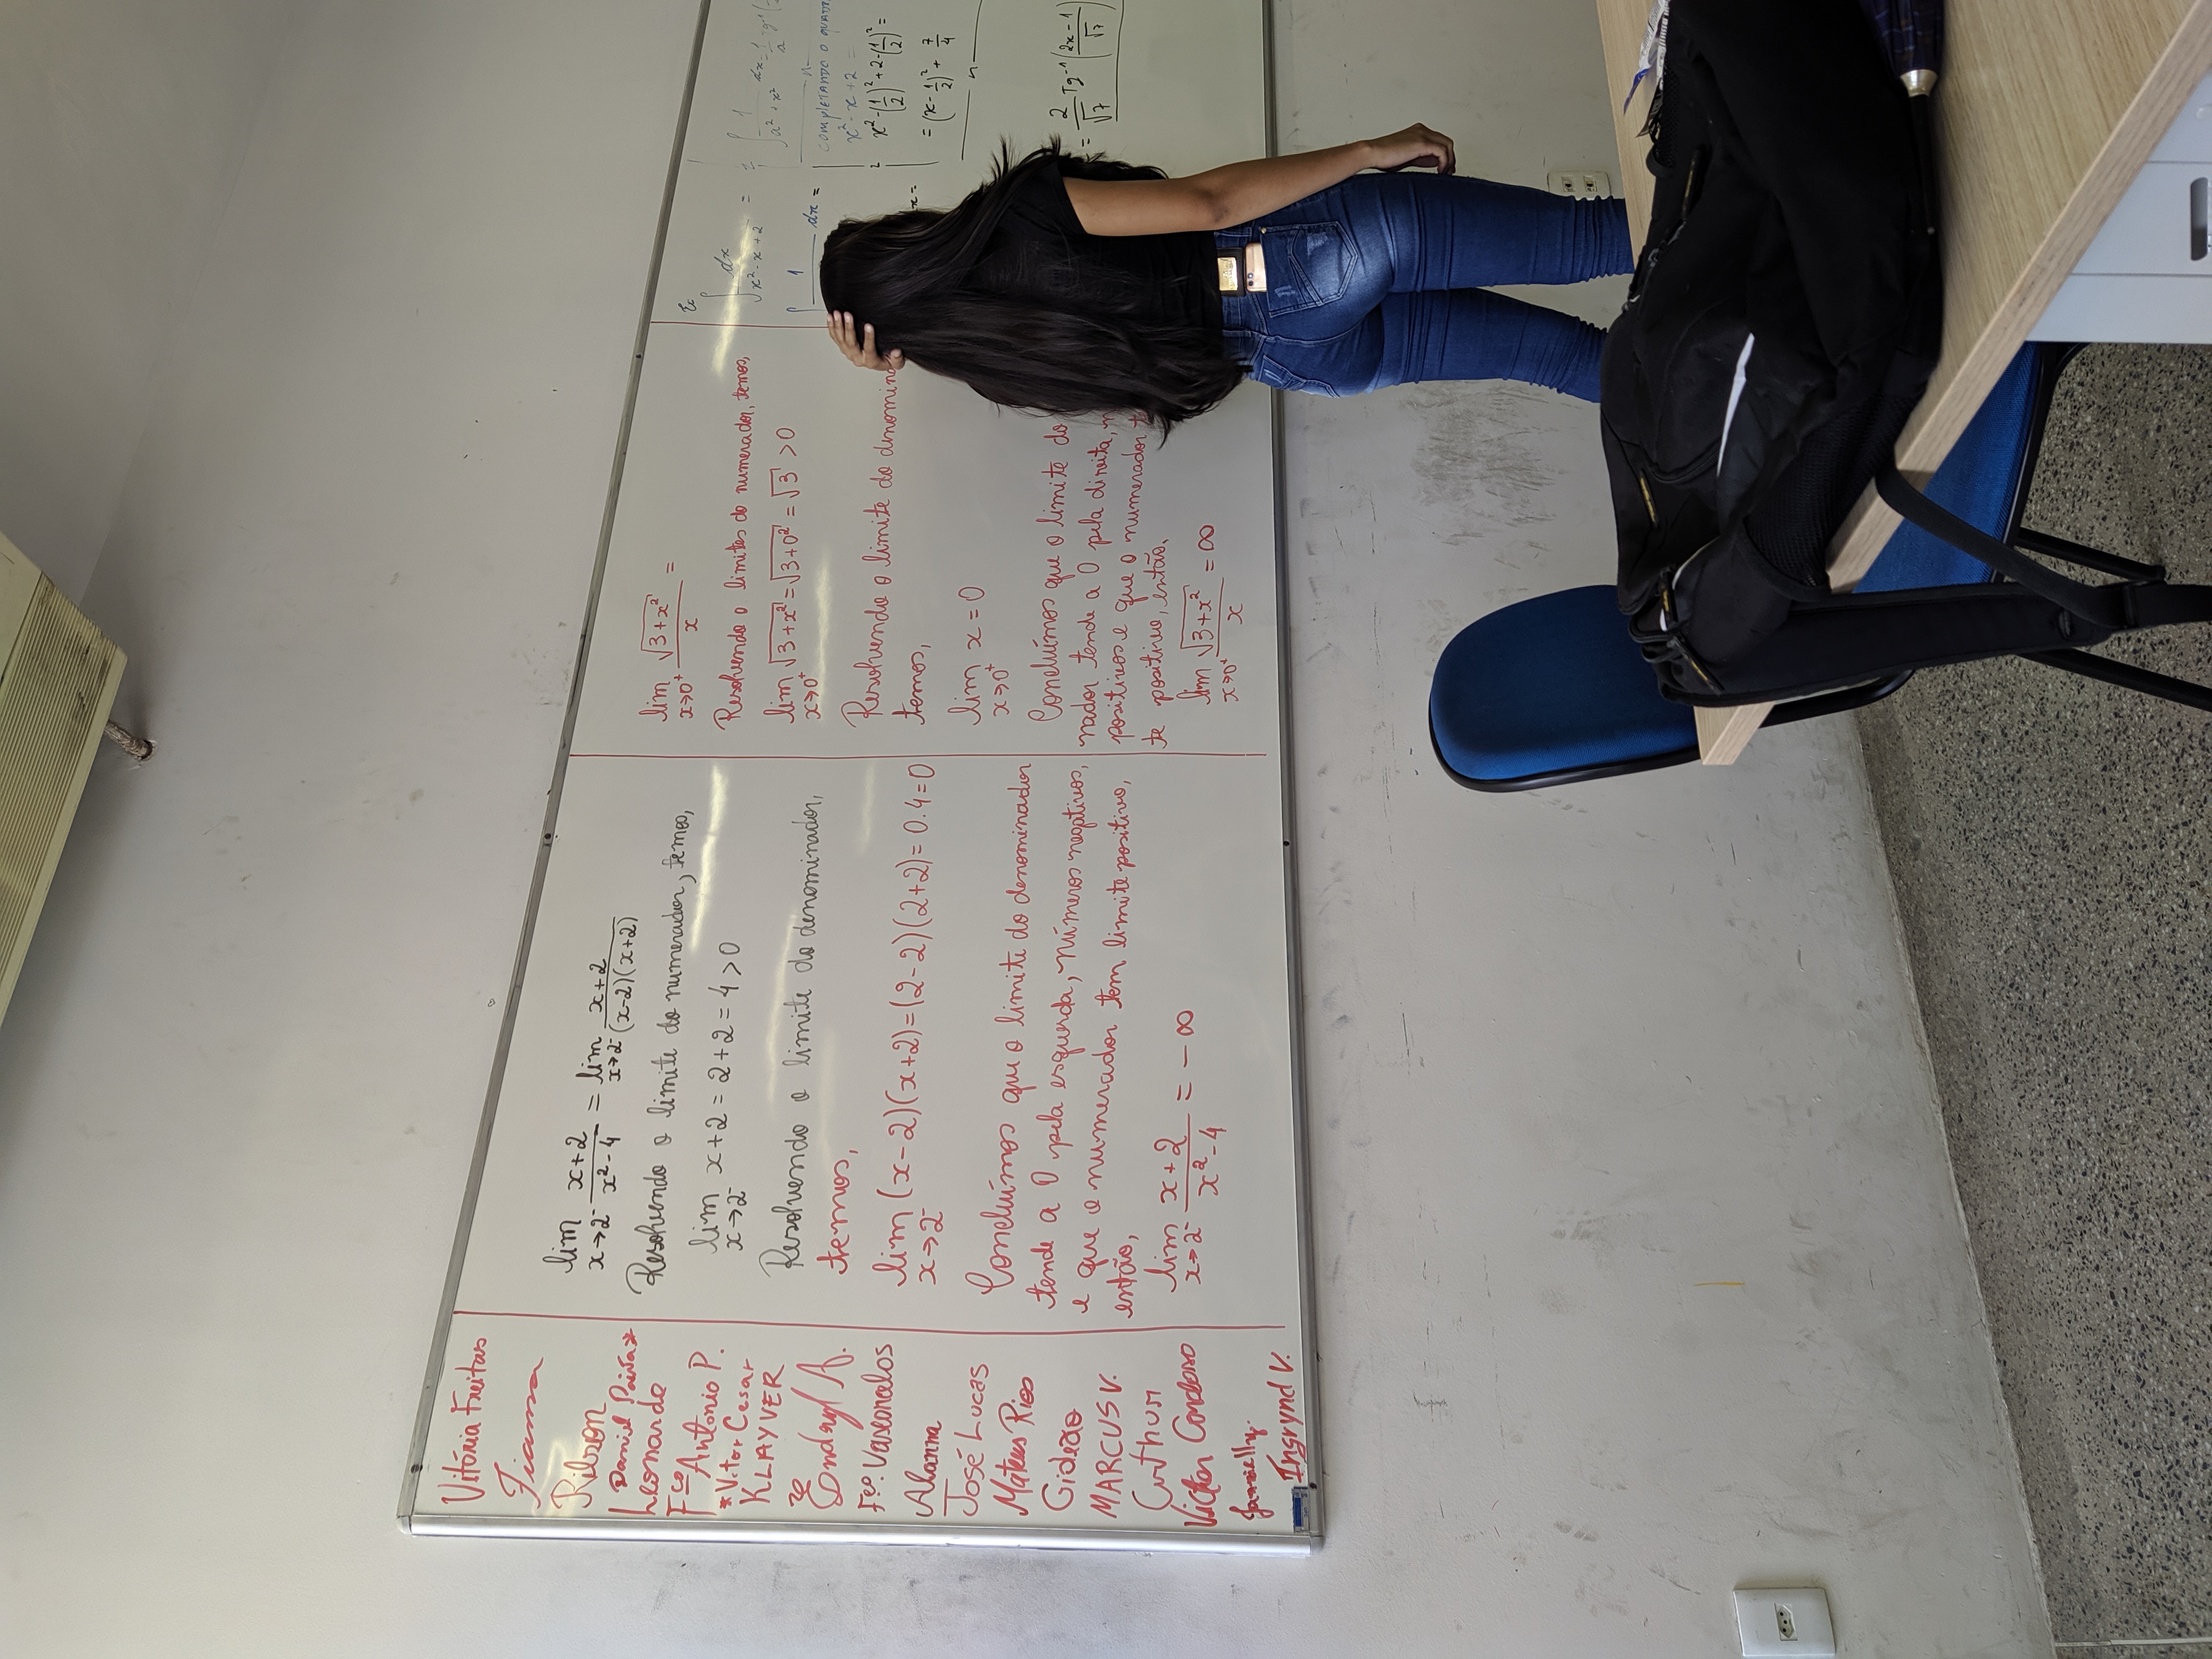 Vitória Freitas
Fiama
Rilson
Daniel Paiva*
Leonardo
Fco Antonio P.
*Vitor Cesar
KLAYVER
Endryl A.
Fco. Vasconcelos
Alanna
José Lucas
Mateus Rios
Gideão
MARCUS V.
Arthur
Victor Cardoso
Jamielly.
Ingrynd V.
lim x→2⁻ (x+2)/(x²-4) = lim x→2⁻ (x+2)/((x-2)(x+2))
Resolvendo o limite do numerador, temos,
lim x→2⁻ x+2 = 2+2 = 4 > 0
Resolvendo o limite do denominador,
temos,
lim x→2⁻ (x-2)(x+2)=(2-2)(2+2)= 0.4=0
Concluímos que o limite do denominador
tende a 0 pela esquerda, números negativos,
e que o numerador tem limite positivo,
então,
lim x→2⁻ (x+2)/(x²-4) = -∞
lim x→0⁺ √(3+x²)/x =
Resolvendo o limites do numerador, temos,
lim x→0⁺ √(3+x²) = √(3+0²) = √3 > 0
Resolvendo o limite do denomin
temos,
lim x→0⁺ x = 0
Concluímos que o limite do
nador tende a 0 pela direita,
positivos e que o numerador t
te positivo, então,
lim x→0⁺ √(3+x²)/x = ∞
Ex
∫ dx/(x²-x+2) =
∫ 1 dx =
x =
∫ 1/(a²+x²) dx = 1/a tg⁻¹(
COMPLETANDO O QUADR
x²-x+2 =
x²-(1/2)²+2-(1/2)² =
= (x-1/2)² + 7/4
= 2/√7 Tg⁻¹((2x-1)/√7)